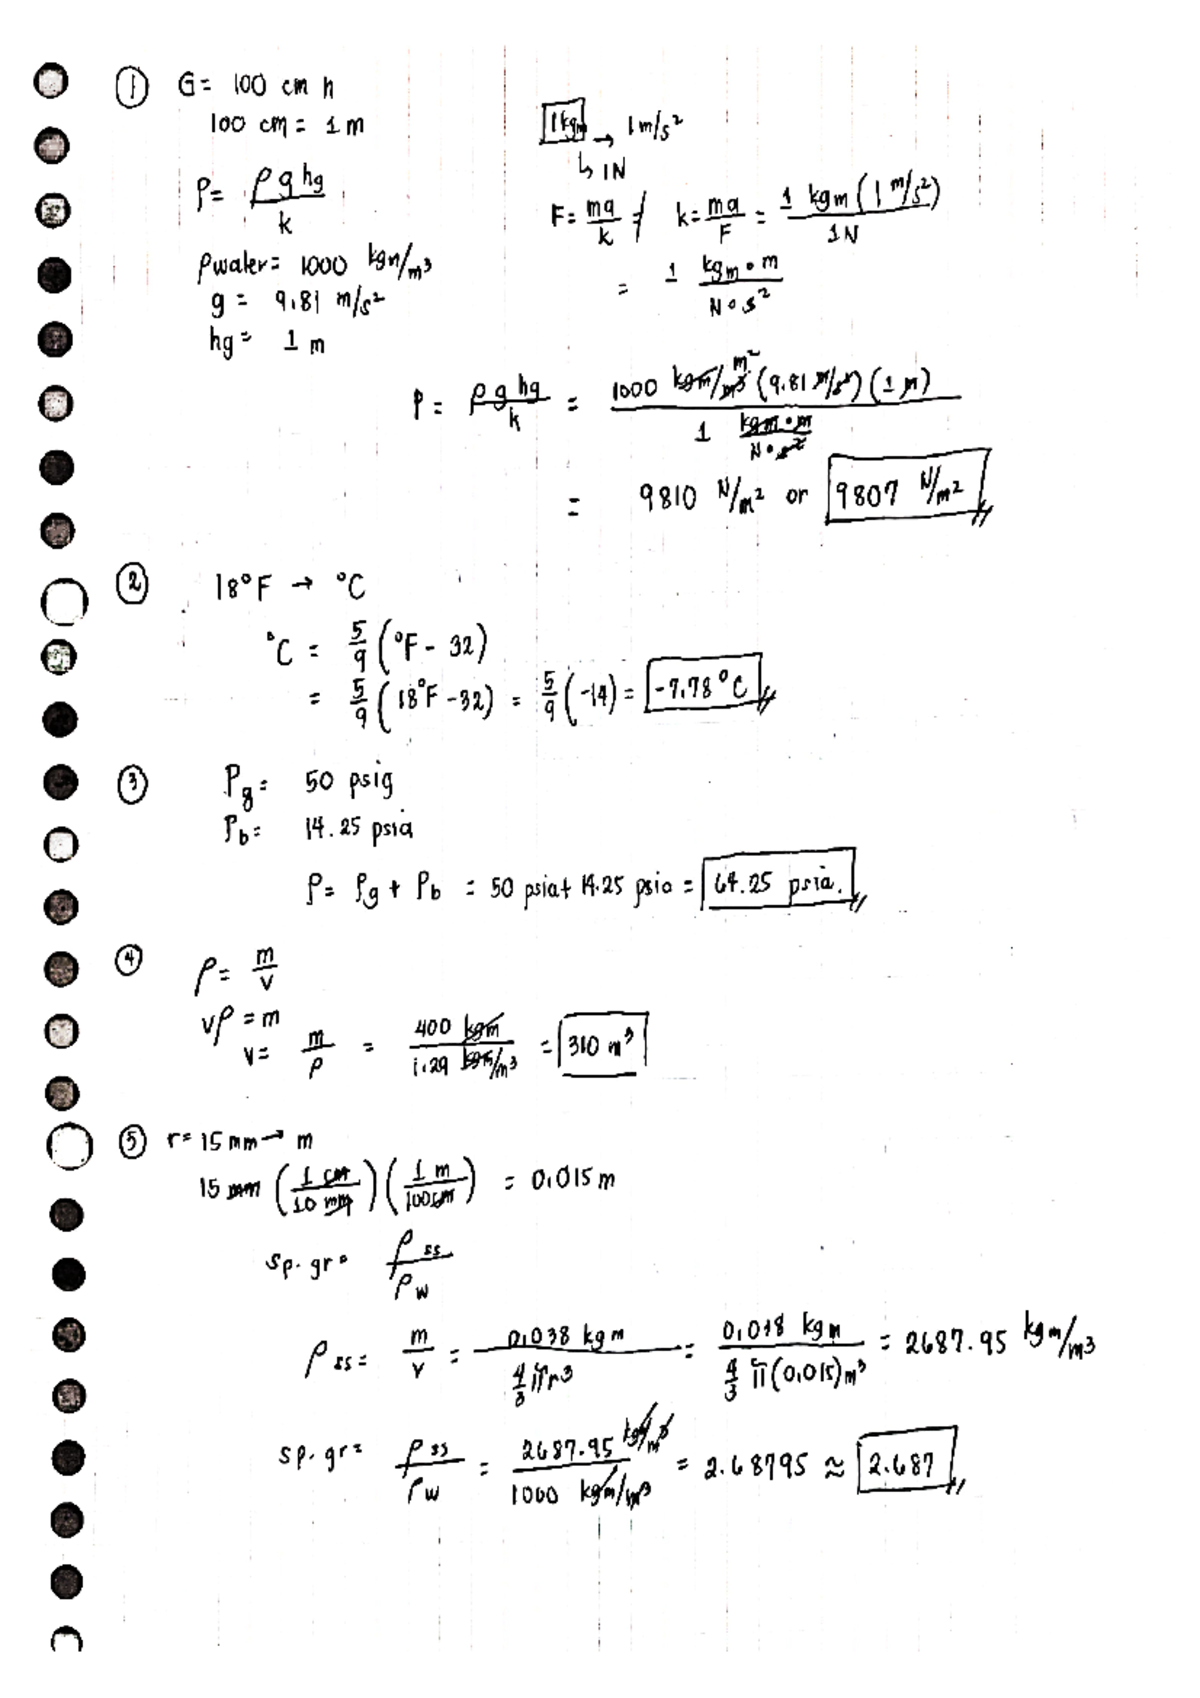 ① G = 100 cm h
100 cm = 1 m
1 kgm → 1 m/s²
↳ 1N
P = ρ g hg / k
F = ma / k ⇒ k = ma / F = 1 kgm (1 m/s²) / 1N
= 1 kgm • m / N • s²
ρwater = 1000 kgm/m³
g = 9.81 m/s²
hg = 1 m
P = ρ g hg / k = 1000 kgm/m³ m² (9.81 m/s²) (1 m) / 1 kgm • m / N • s²
= 9810 N/m² or 9807 N/m²
② 18°F → °C
°C = 5/9 (°F - 32)
= 5/9 (18°F - 32) = 5/9 (-14) = -7.78 °C
③ Pg = 50 psig
Pb = 14.25 psia
P = Pg + Pb = 50 psia + 14.25 psia = 64.25 psia.
④ ρ = m / v
vρ = m
v = m / ρ = 400 kgm / 1.29 kgm/m³ = 310 m³
⑤ r = 15 mm → m
15 mm (1 cm / 10 mm) (1 m / 100 cm) = 0.015 m
sp. gr = ρss / ρw
ρss = m / v = 0.038 kgm / 4/3 πr³ = 0.038 kgm / 4/3 π(0.015)m³ = 2687.95 kgm/m³
sp. gr = ρss / ρw = 2687.95 kgm/m³ / 1000 kgm/m³ = 2.68795 ≈ 2.687